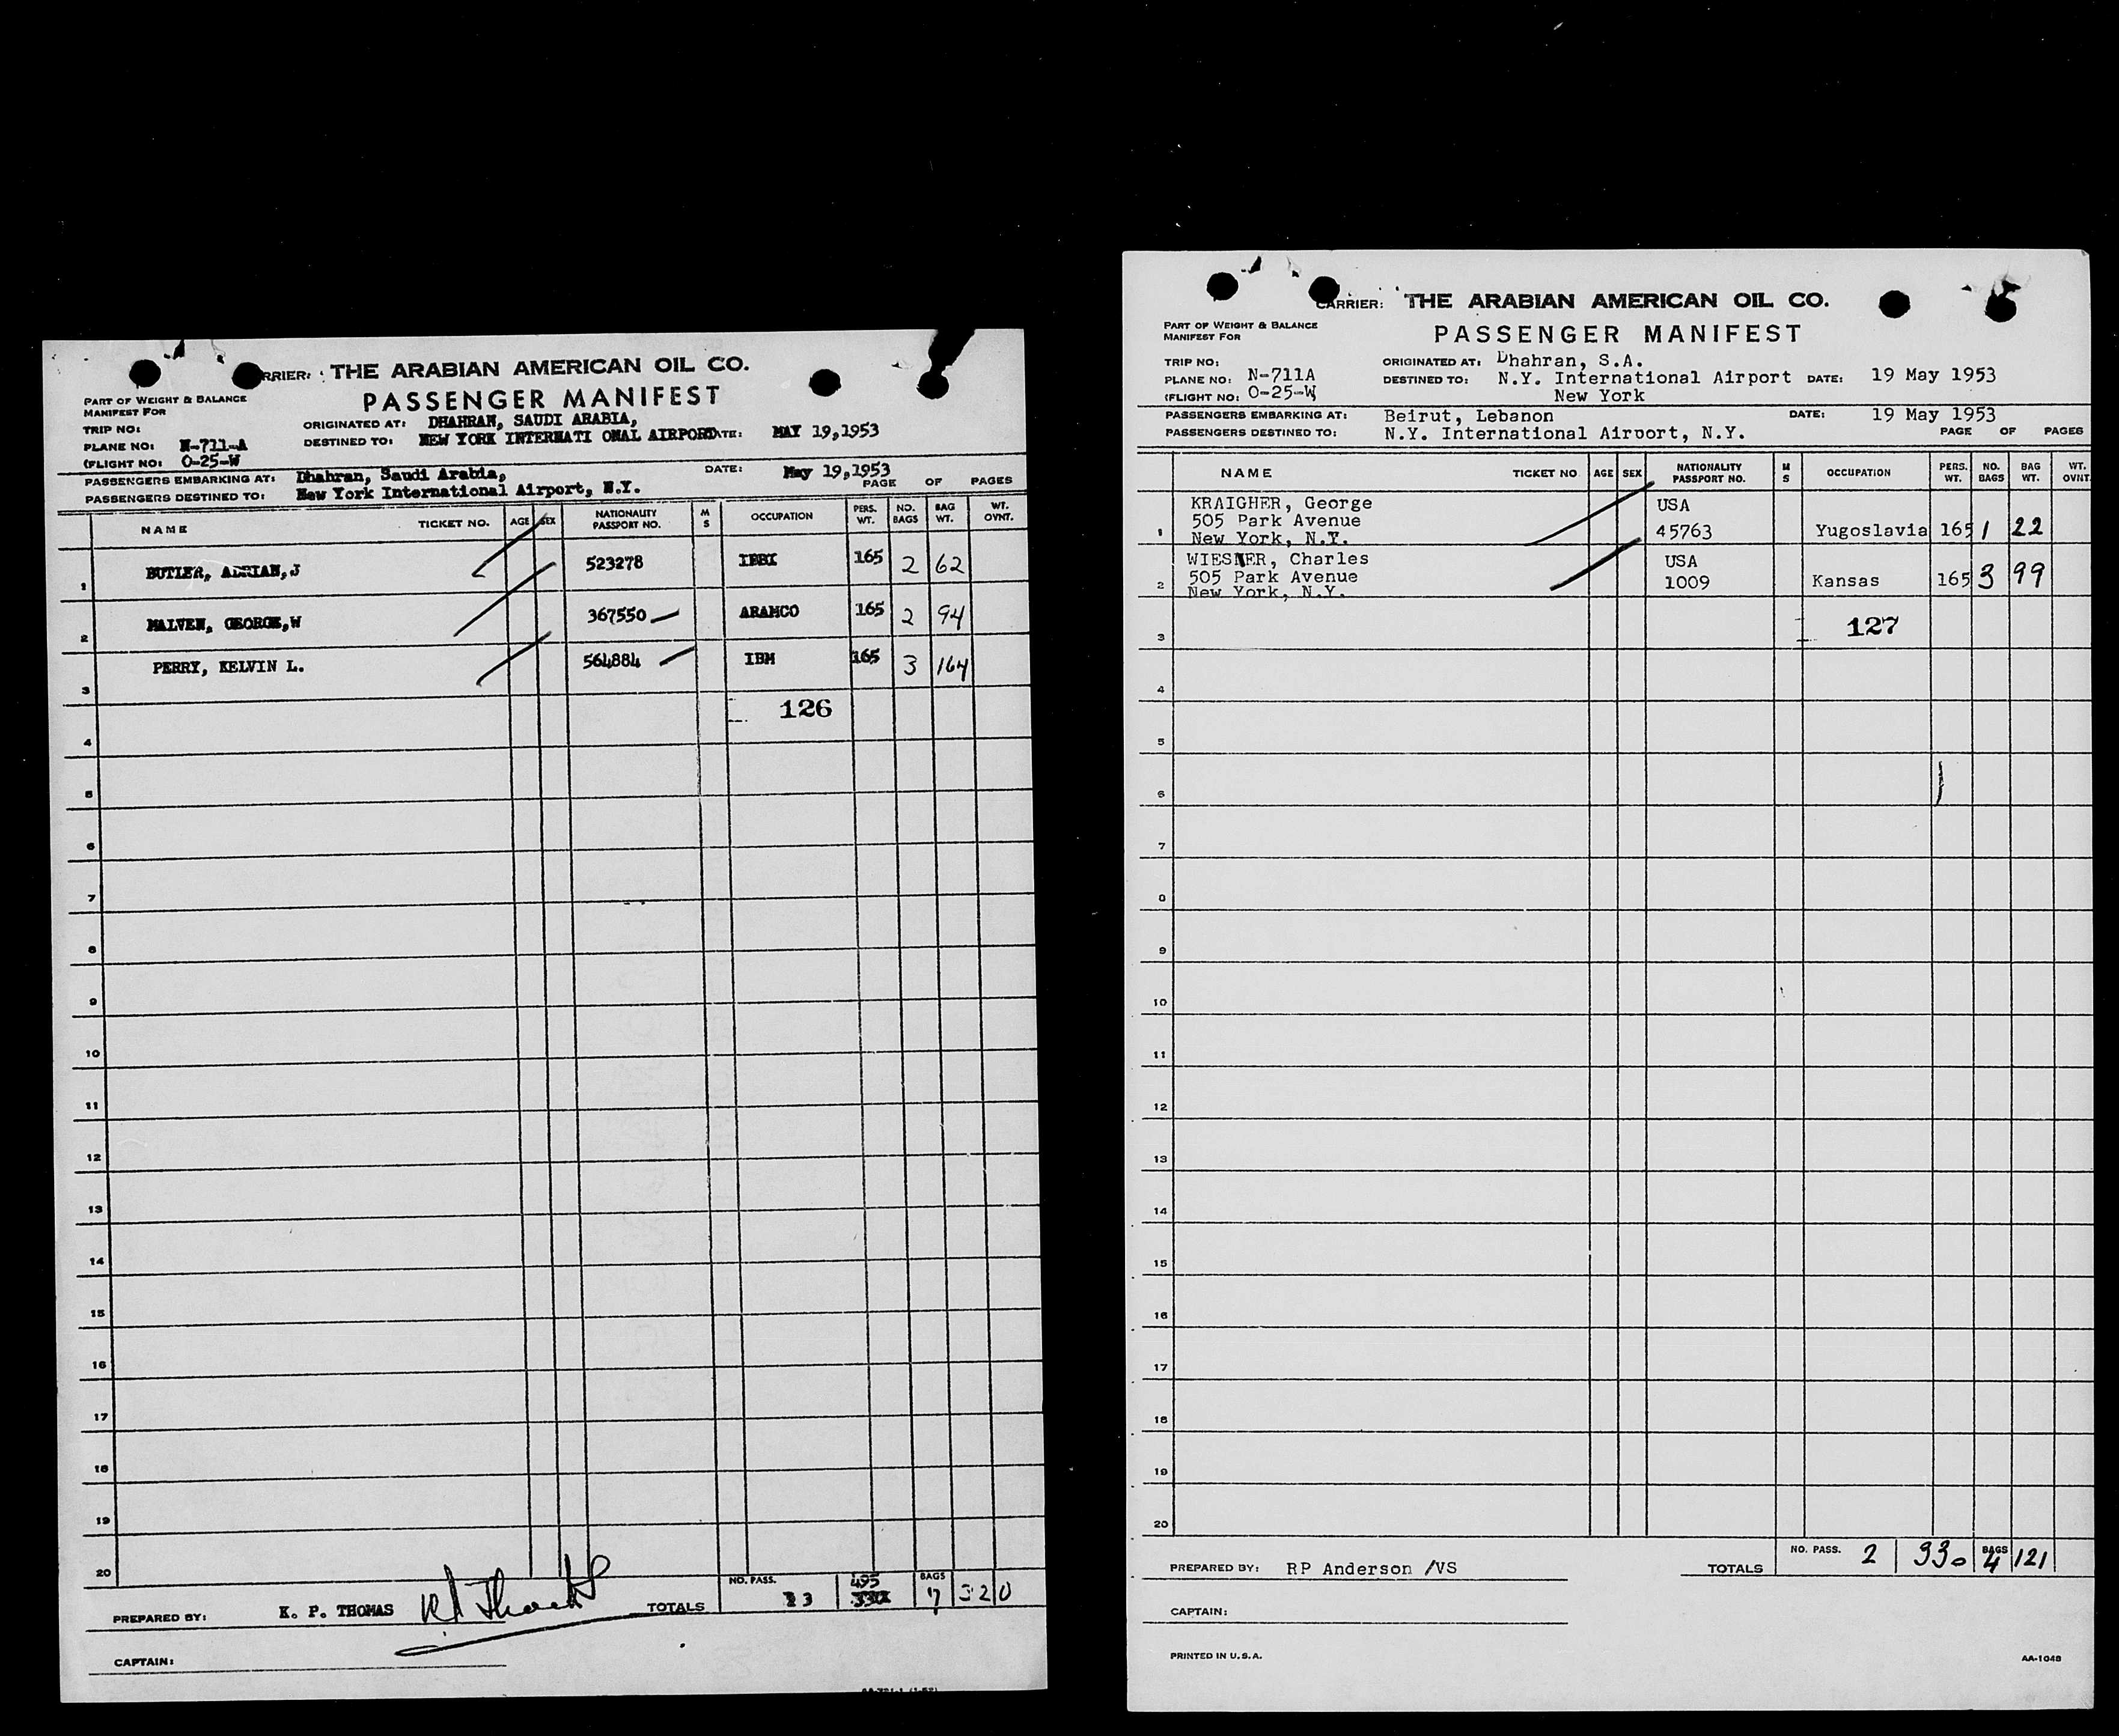 CARRIER: THE ARABIAN AMERICAN OIL CO.
PASSENGER MANIFEST
PART OF WEIGHT & BALANCE
MANIFEST FOR
TRIP NO:
ORIGINATED AT: DHAHRAN, SAUDI ARABIA,
PLANE NO: N-711-A
DESTINED TO: NEW YORK INTERNATI ONAL AIRPORT DATE: MAY 19,1953
(FLIGHT NO: O-25-W
PASSENGERS EMBARKING AT: Dhahran, Saudi Arabia, DATE: May 19,1953
PASSENGERS DESTINED TO: New York International Airport, N.Y. PAGE OF PAGES
NAME TICKET NO. AGE SEX NATIONALITY PASSPORT NO. M S OCCUPATION PERS. WT. NO. BAGS BAG WT. WT. OVNT.
1 BUTLER, ADRIAN,J 523278 165 2 62
2 MALVEN, GEORGE,W 367550 ARAMCO 165 2 94
3 PERRY, KELVIN L. 564884 IBM 165 3 164
126
4
5
6
7
8
9
10
11
12
13
14
15
16
17
18
19
20
NO. PASS. 3 495 BAGS 7 320
PREPARED BY: K. P. THOMAS TOTALS
CAPTAIN:
CARRIER: THE ARABIAN AMERICAN OIL CO.
PART OF WEIGHT & BALANCE
MANIFEST FOR
PASSENGER MANIFEST
TRIP NO:
ORIGINATED AT: Dhahran, S.A.
PLANE NO: N-711A
DESTINED TO: N.Y. International Airport DATE: 19 May 1953
(FLIGHT NO: O-25-W
New York
PASSENGERS EMBARKING AT: Beirut, Lebanon DATE: 19 May 1953
PASSENGERS DESTINED TO: N.Y. International Airport, N.Y. PAGE OF PAGES
NAME TICKET NO AGE SEX NATIONALITY PASSPORT NO. M S OCCUPATION PERS. WT. NO. BAGS BAG WT. WT. OVNT.
KRAIGHER, George USA
505 Park Avenue
1 New York, N.Y. 45763 Yugoslavia 165 1 22
WIESNER, Charles USA
2 505 Park Avenue 1009 Kansas 165 3 99
New York, N.Y.
127
3
4
5
6
7
8
9
10
11
12
13
14
15
16
17
18
19
20
NO. PASS. 2 330 BAGS 4 121
PREPARED BY: RP Anderson /VS TOTALS
CAPTAIN:
PRINTED IN U.S.A. AA-1048